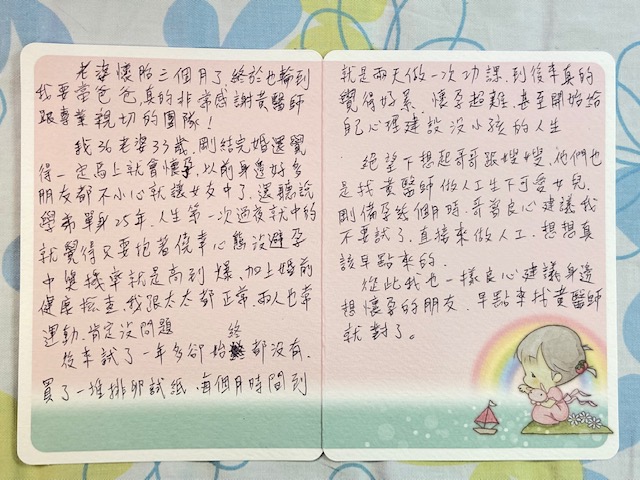 老婆懷胎三個月了,終於也輪到
我要當爸爸,真的非常感謝黃醫師
跟專業親切的團隊!
我36老婆33歲,剛結完婚還覺
得一定馬上就會懷孕,以前身邊好多
朋友都不小心就讓女友中了,還聽說
學弟單身25年,人生第一次過夜就中的
就覺得只要抱著僥幸心態沒避孕
中獎機率就是高到爆,加上婚前
健康檢查,我跟太太都正常,兩人也常
運動,肯定沒問題
後來試了一年多卻始終都沒有,
買了一堆排卵試紙,每個月時間到
就是兩天做一次功課,到後來真的
覺得好累,懷孕超難,甚至開始給
自己心理建設沒小孩的人生
絕望下想起哥哥跟嫂嫂,他們也
是找黃醫師做人工生下可愛女兒,
剛備孕幾個月時,哥哥良心建議我
不要試了,直接來做人工,想想真
該早點來的.
從此我也一樣良心建議身邊
想懷孕的朋友,早點來找黃醫師
就對了。